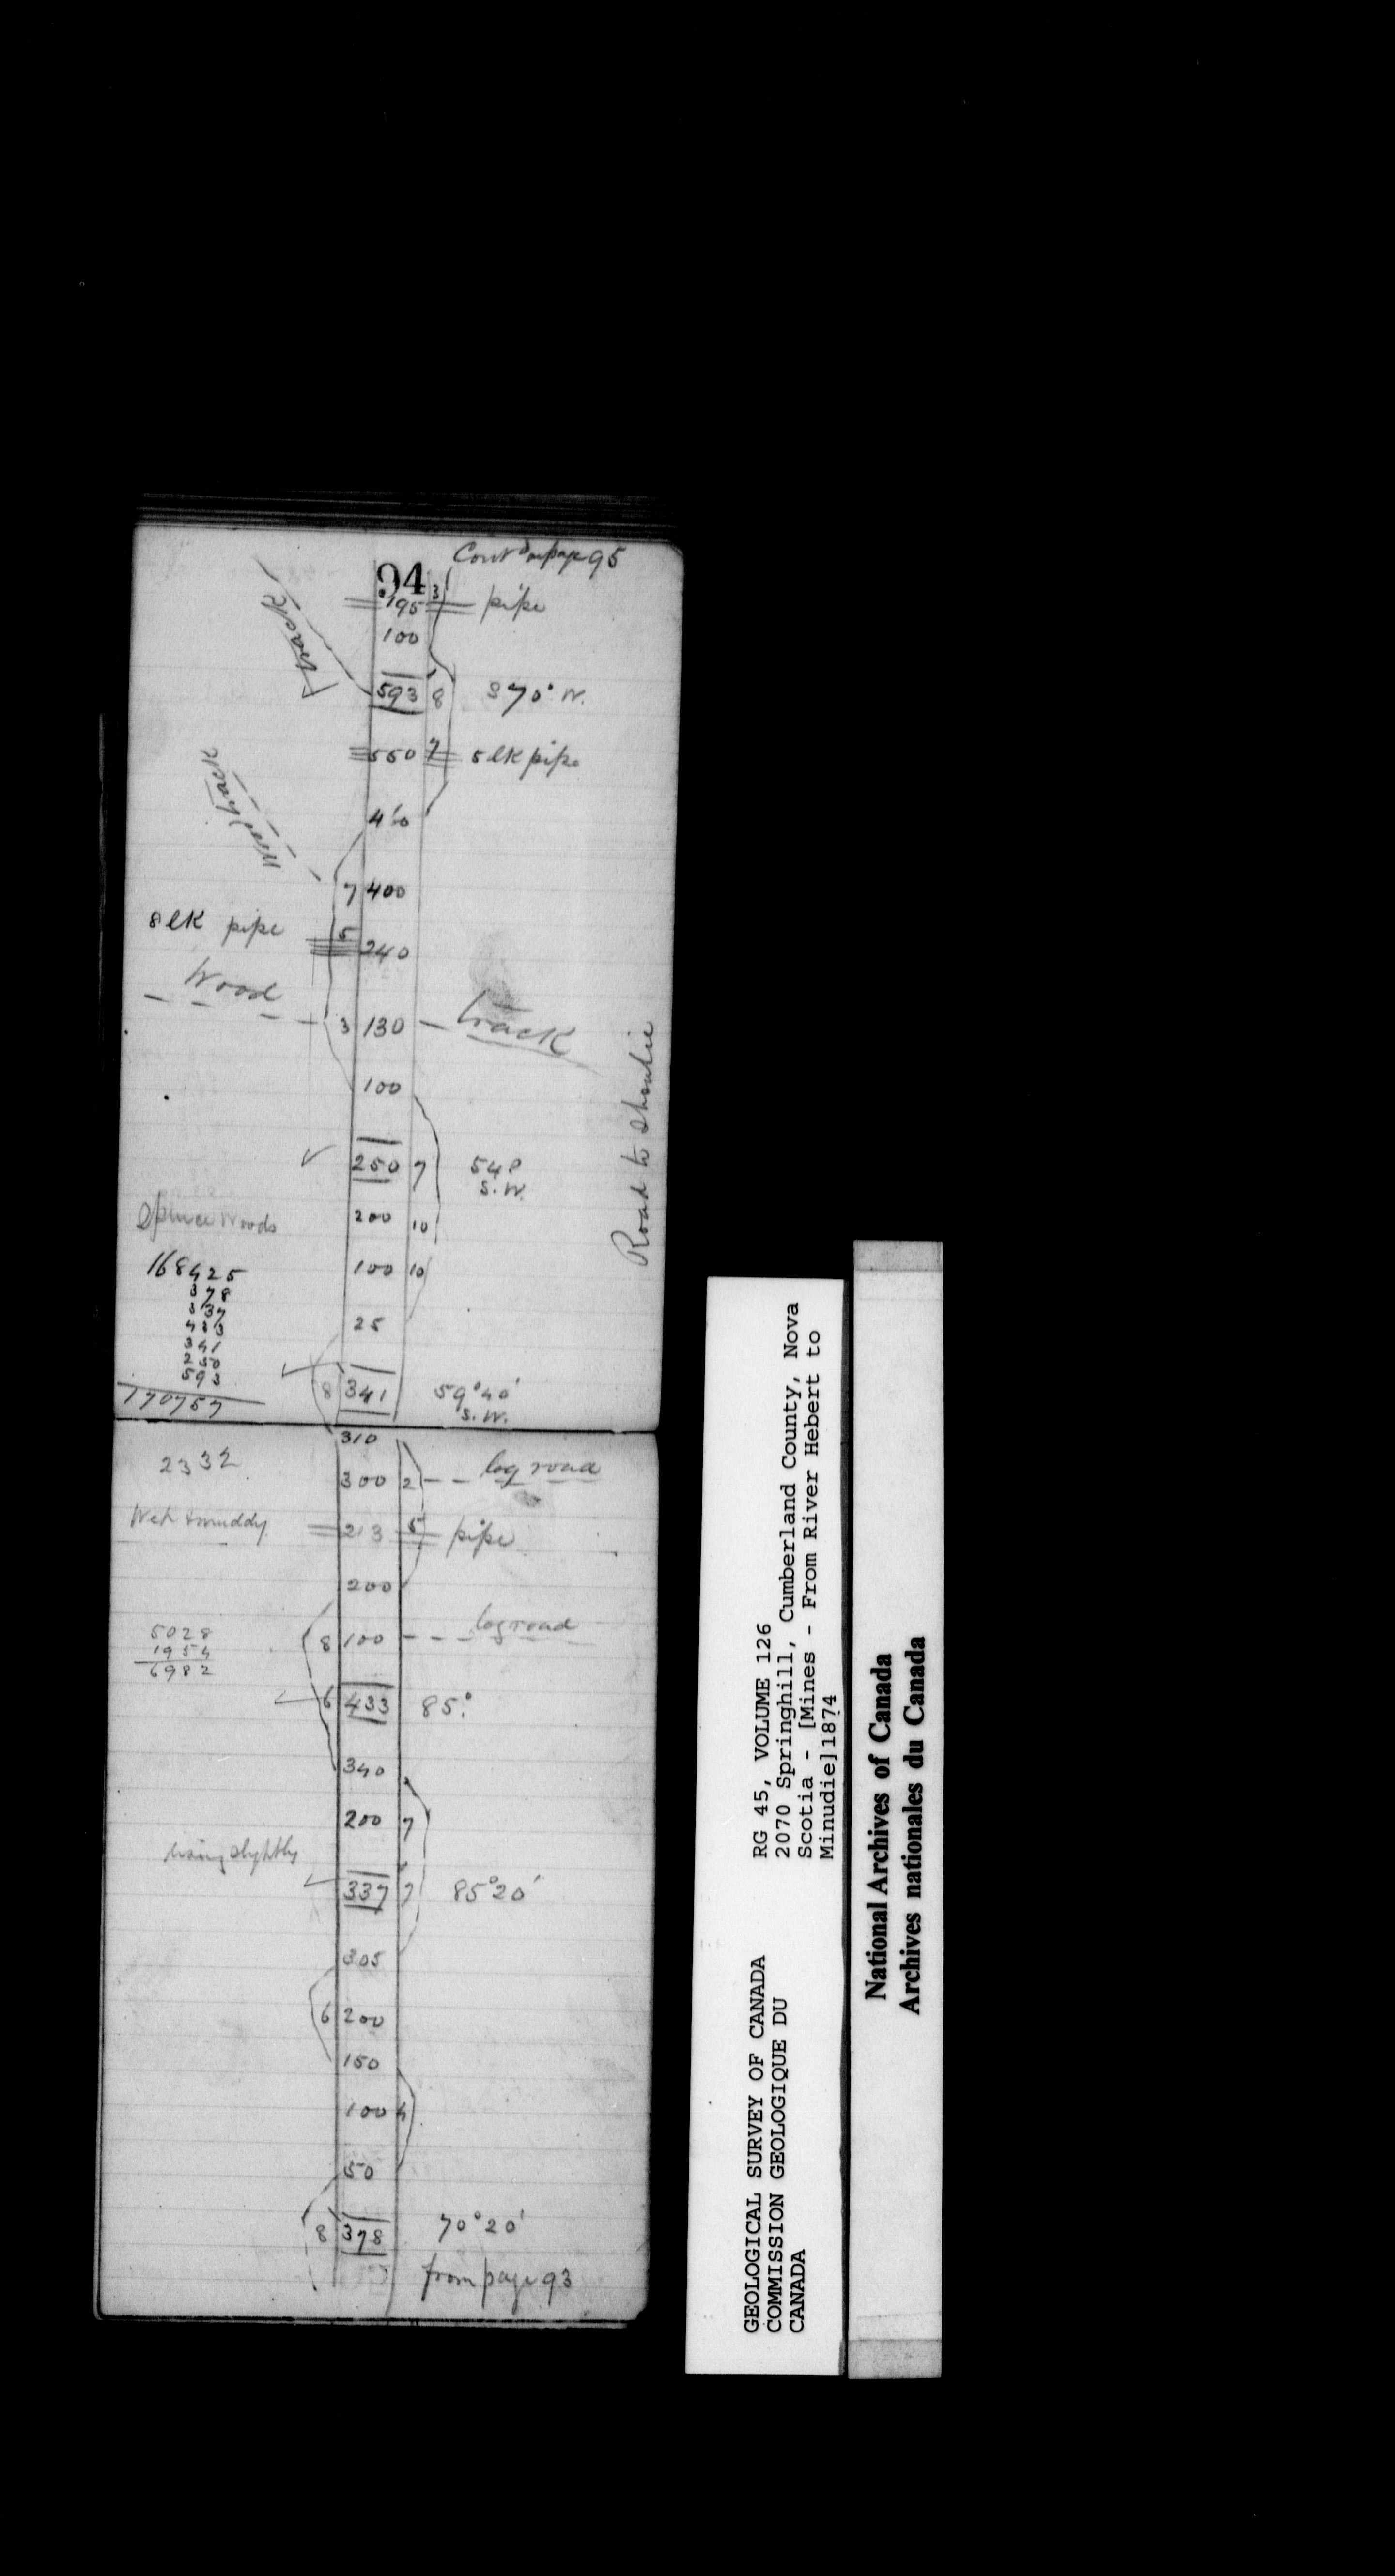 Cont'd on page 95
94
195 3 pipe
100
track
593 8 S 70° W.
550 7 5 lk pipe
460
Wood track
7 400
8 lk pipe 5 240
Wood 3 130 track
100
250 7 54°
S. W.
Road to Shoulie
200 10
Spruce Woods
100 10
168425
378
337
433
341
250
593
170757
25
8 341 59°40'
S. W.
310
2332
300 2 log road
Wet & muddy 213 5 pipe
200
8 100 log road
5028
1954
6982
6 433 85°
340
200 7
rising slightly
337 7 85°20'
305
6 200
150
100 4
50
8 378 70°20'
from page 93
GEOLOGICAL SURVEY OF CANADA
COMMISSION GEOLOGIQUE DU
CANADA
RG 45, VOLUME 126
2070 Springhill, Cumberland County, Nova
Scotia - [Mines - From River Hebert to
Minudie]1874
National Archives of Canada
Archives nationales du Canada